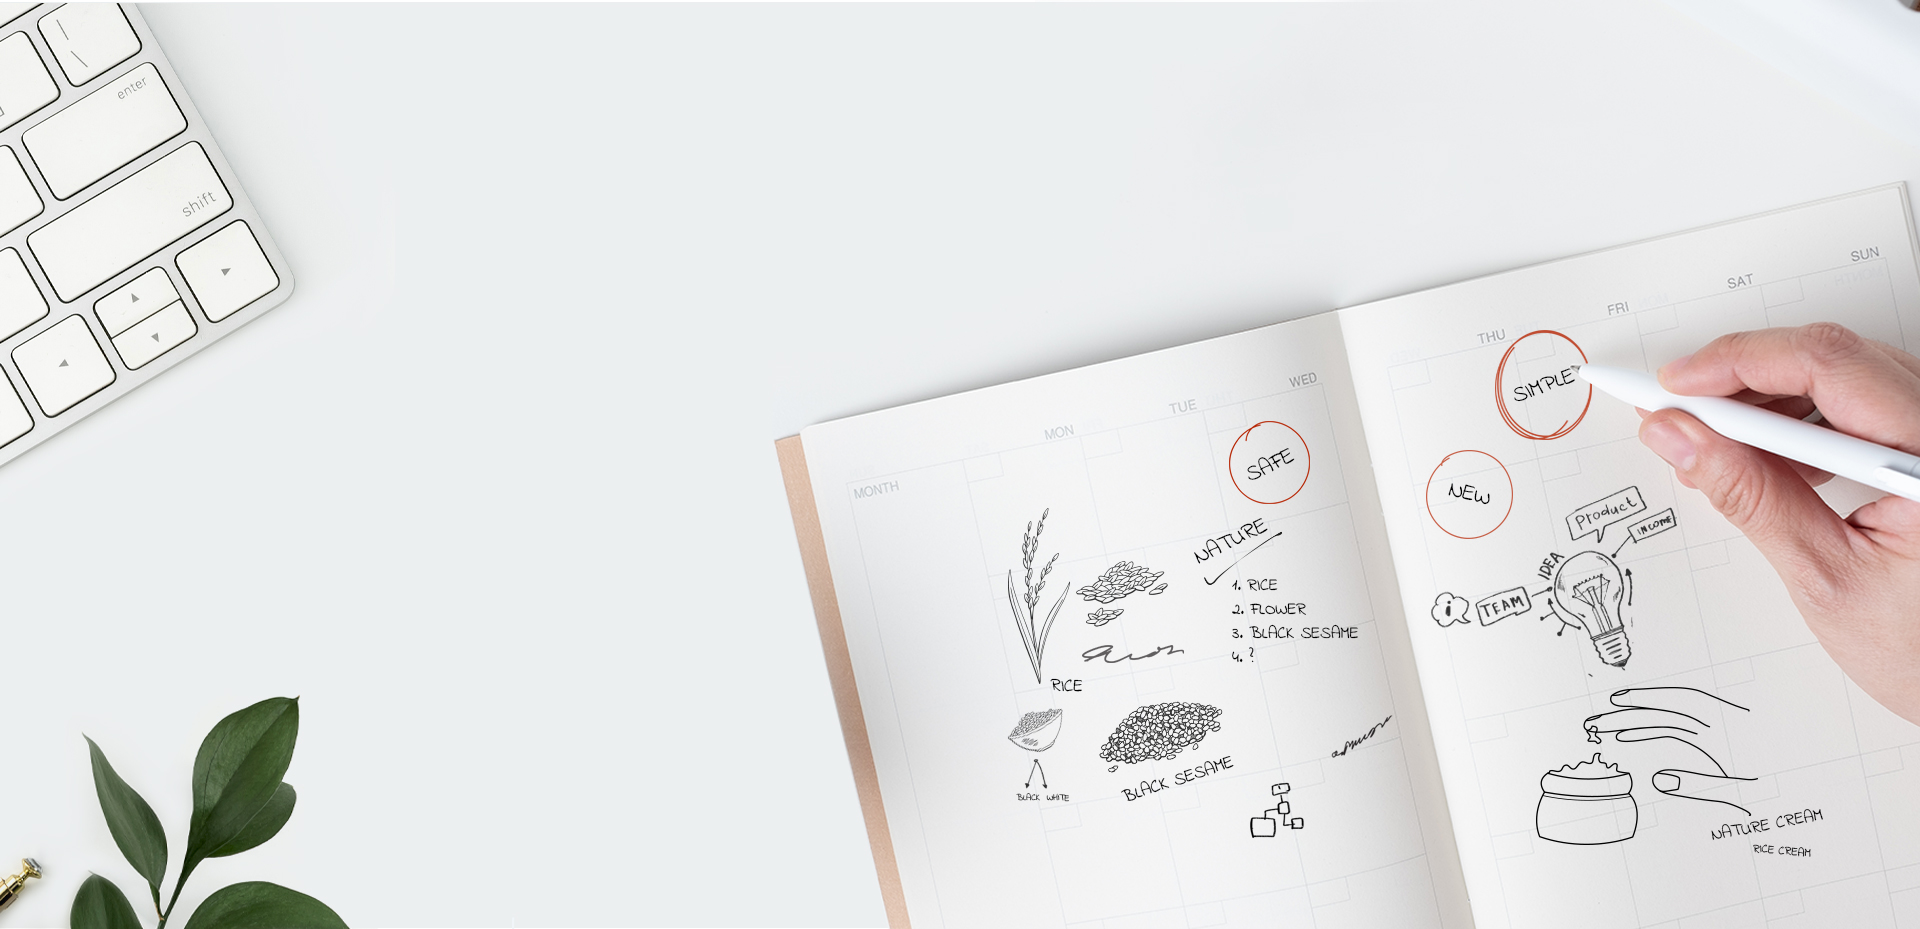 enter
shift
MONTH
MON
TUE
WED
THU
FRI
SAT
SUN
SAFE
NATURE
1. RICE
2. FLOWER
3. BLACK SESAME
4. ?
RICE
BLACK WHITE
BLACK SESAME
SIMPLE
NEW
Product
INCOME
IDEA
TEAM
i
NATURE CREAM
RICE CREAM